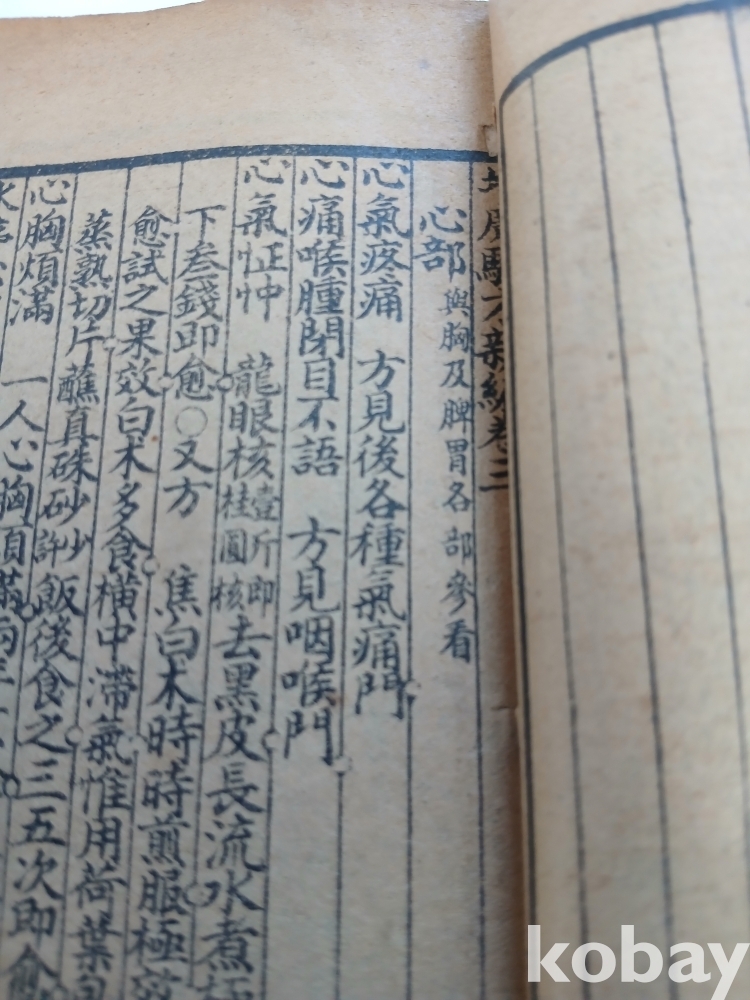 廣驗方新編卷三
心部 與胸及脾胃各部參看
心氣疼痛 方見後各種氣痛門
心痛喉腫閉目不語 方見咽喉門
心氣怔忡 龍眼核壹斤即桂圓核去黑皮長流水煮
下叁錢即愈○又方 焦白木時時煎服極效
愈試之果效白木多食橫中滯氣惟用荷葉
蒸熟切片蘸真硃砂少許飯後食之三五次即愈
心胸煩滿 一人心胸煩滿兩年
kobay